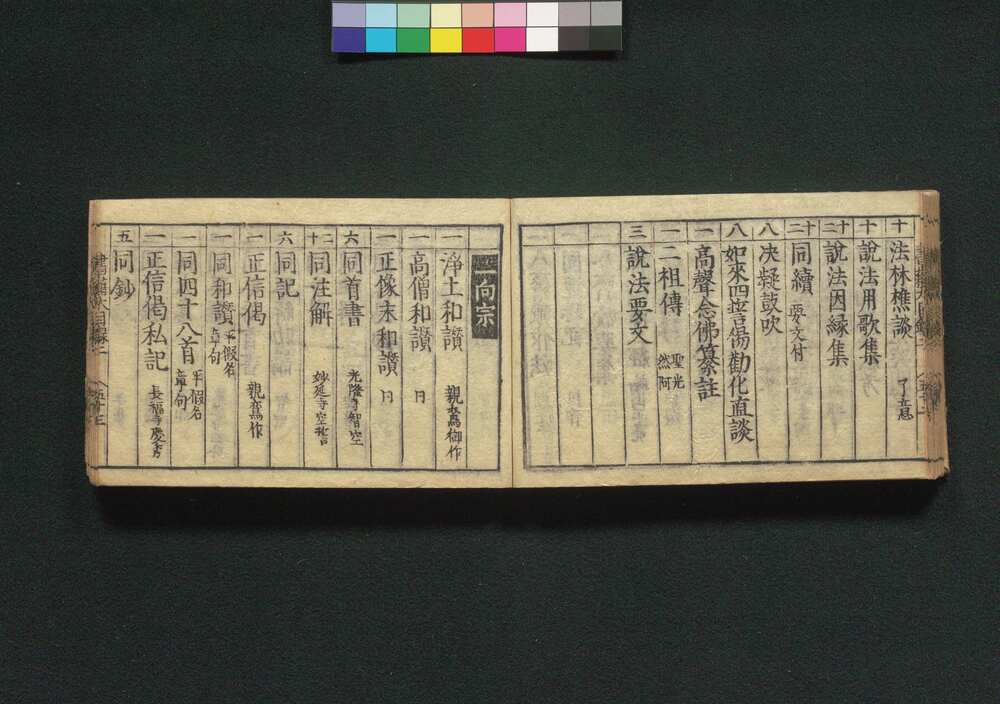 十 法林樵談 了意
十 說法用歌集
十二 說法因縁集
二十 同續 要文付
八 决疑鼓吹
八 如來四誓偈勸化直談
一 高聲念佛纂註
一 二祖傳 聖光 然阿
三 說法要文
一向宗
一 淨土和讚 親鸞御作
一 高僧和讚 同
一 正像末和讚 同
六 同首書 光隆寺智空
十二 同注解 妙延寺空哲
六 同記
一 正信偈 親鸞作
一 同和讚 平假名 章句
一 同四十八首 平假名 章句
一 正信偈私記 長福寺慶秀
五 同鈔